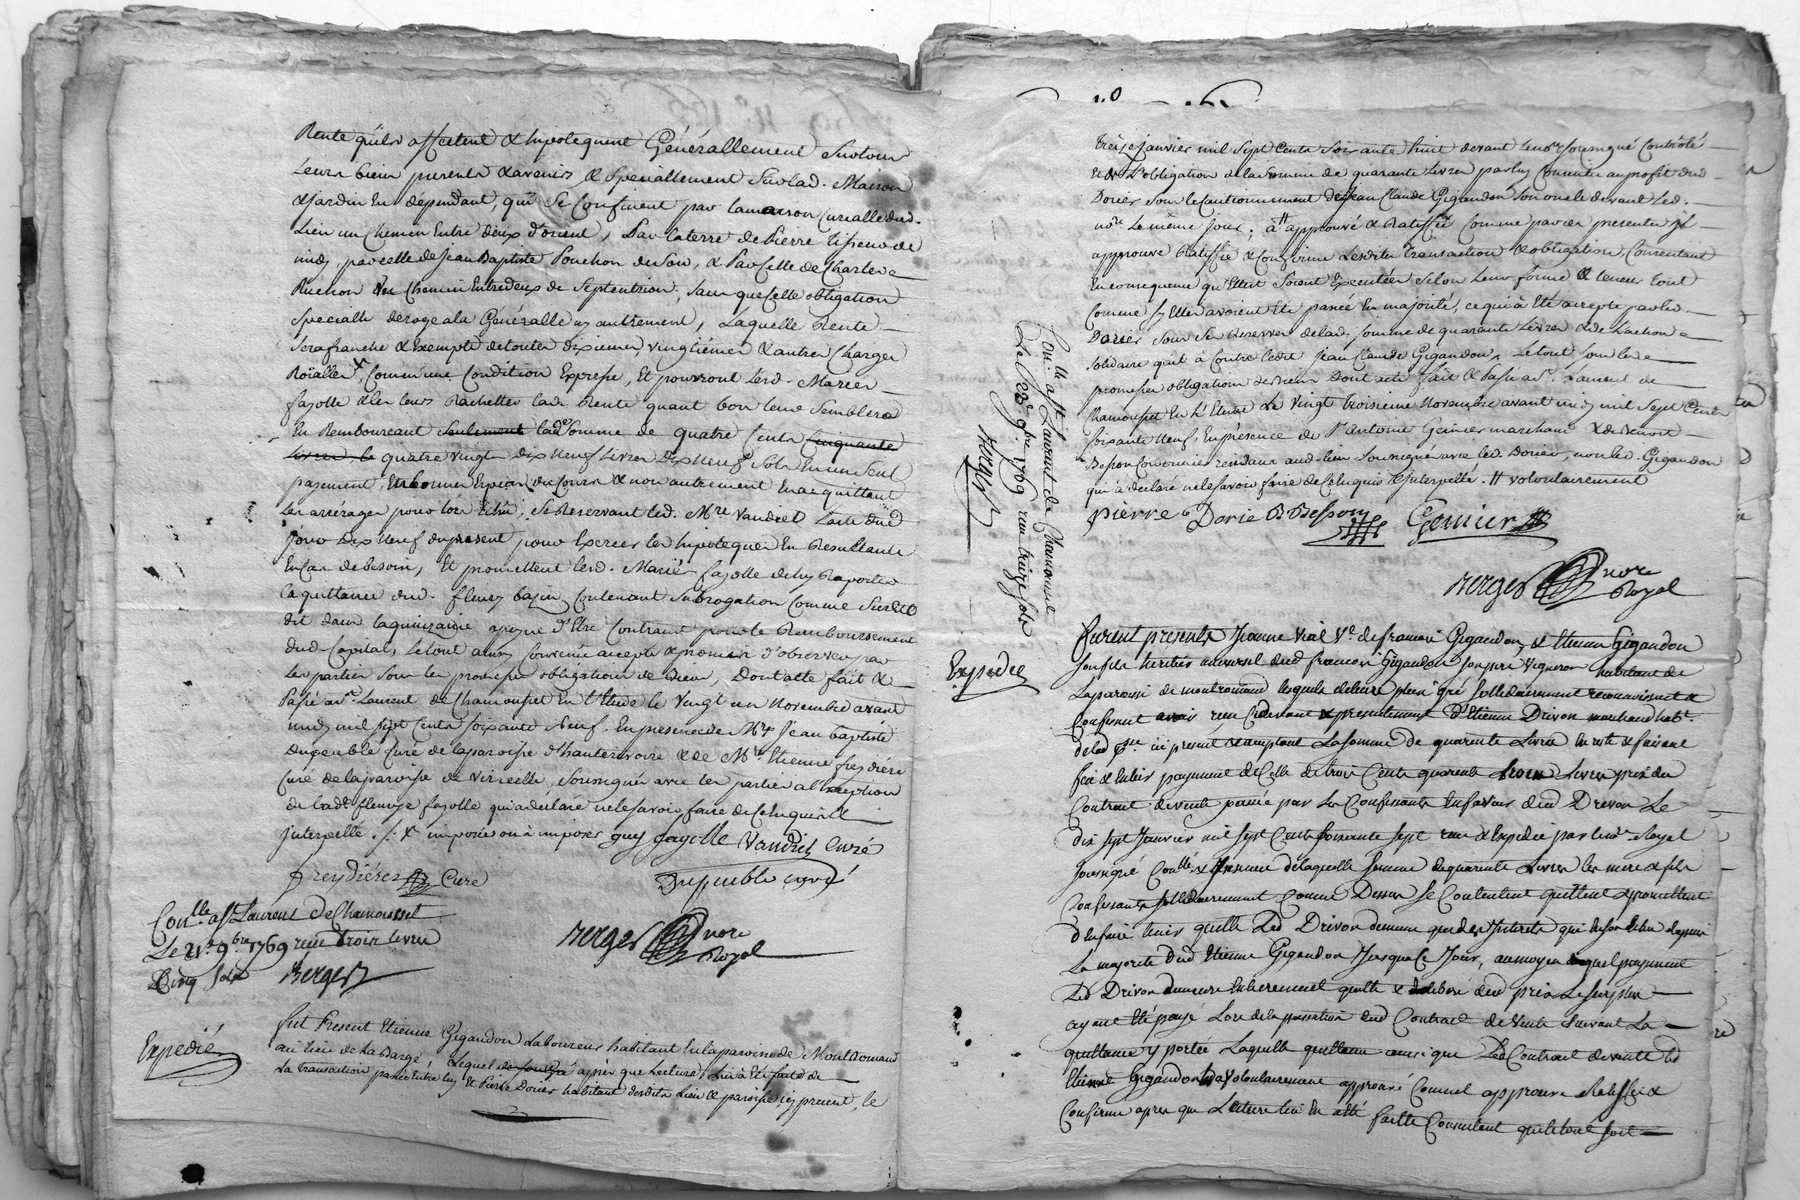 Rente qu'ils affectent & hipotequent Générallement Sur tous
Leurs biens presents & avenirs & Speciallement Sur lad. Maison
& jardin En dépendant, qui Se Confinent par la maison Curialle dud.
Lieu un Chemin Entre deux d'orient, Par la terre de Pierre
midy, par celle de Jean Baptiste Ponchon du Soir, & Par Celle de Charles
Ruchon Un Chemin Entredeux de Septentrion, Sans que Cette obligation
Specialle deroge a la Généralle ny autrement, Laquelle Rente
Sera franche & exempte de toutes dixiemes, vingtiémes & autres Charges
Roïalles, Comm'une Condition Expresse, Et pourront Lesd. Mariés
fayolle & les leurs Rachetter lad. Rente quant bon leur Semblera
En Remboursant seulement lade Somme de quatre Cents Cinquante
Livres, le quatre vingt Dix Neuf Livres Dix Neuf Sols En un Seul
payement, En bonnes Espèces du Cours & non autrement En acquittant
Les arrérages pour lors , Se Reservant led. Mre Vaudiet L'acte dud
jour Dix Neuf du present pour Exercer les hipoteques En Resultants
En Cas de besoin, Et promettent lesd. Mariés fayolle de luy Raporter
la quittance dud. fleury bazin Contenant Subrogation Comme Sus est
dit dans la quinzaine a peyne d'Etre Contraint pour le Remboursement
dud Capital, Le tout ainsy Convenu accepté & promis d'observer par
Les parties Sous les promesses obligations de Biens, Dont acte fait &
Passé a St. Laurent de Chamousset En l'Etude le Vingt un Novembre avant
midy mil Sept Cents Soixante Neuf. En presence de Mre Jean baptiste
Dupeuble Curé de la paroisse d'hauterivoire & de Mre Etienne freydiére
Curé de la paroisse de Viricelle, Soussignés avec les parties a l'Exception
de lade fleurye fayolle qui a déclaré ne le Savoir faire de Ce Enquise &
Interpellé . /. & imposées ou à imposer guy fayolle Vaudiet Curé
freydiéres Curé Dupeuble curé
Conlle. a St Laurent de Chamousset
Le 21e 9bre 1769 reçu trois livres
Cinq Sols Berger
Berger nore
Royal
Expedié
fut Present Etienne Gigandon Laboureur habitant En la paroisse de Montromand
au lieu de La Barge, Lequel de son gré après que Lecture Lui à Eté faitte de
La transaction passée Entre luy Et Pierre Dorier habitant desdits Lieu & paroisse icy present, le
treize janvier mil Sept Cents Soixante huit devant le nore Soussigné Contrôlé
Et de L'obligation de la Somme de quarante Livres par luy Consentie au profit dud
Dorier Sous le Cautionnement de Jean Claude Gigandon Son oncle devant Led.
nore Le même jour, à # approuvé & Ratiffié Comme par ces presentes Il
approuve Ratiffie & Confirme Lesdites transaction & obligation, Consentant
En consequence qu'Elles Soient Executées Selon Leur forme & teneur tout
Comme Sy Elles avoient Eté passée En majorité, ce qui à Eté accepté par led.
Dorier Sous Ses Reserves de lad. Somme de quarante Livres & de L'action
Solidaire qu'il à Contre ledit Jean Claude Gigandon, Le tout Sous les
promesses obligations de Biens Dont acte fait & passé a St. Laurent de
Chamousset En l'Etude Le Vingt troisieme Novembre avant midy mil Sept Cents
Soixante Neuf, En presence de Sr Antoine Genier marchand & de Benoit
Besson Cordonnier residants aud. lieu Soussignés avec led. Dorier, non led. Gigandon
qui à declaré ne le Savoir faire de Ce Enquis & Interpellé. # volontairement
pierre Dorie B Besson Genier
Berger nore
Royal
Conlle. a St Laurent de Chamousset
Le 23e. 9bre 1769 reçu treize Sols
Berger
Expedié
furent presents Jeanne Vial Ve. de francois Gigandon, & Etienne Gigandon
Son fils heritier universel dud francois Gigandon Son pere Vigneron habitant de
La paroisse de montromand lesquels de leur plein gré Sollidairement reconnoissent &
Confessent avoir reçu Cidevant & presentement d'Etienne Drivon marchand habt.
de lad pse. ici present & acceptant La Somme de quarente Livres En reste & faisant
fin & Entier payement de Celle de trois Cents quarente trois Livres prix du
Contract de vente passé par Les Confessants En faveur dud Drevon Le
dix sept Janvier mil Sept Cents Soixante Sept reçu & Expedié par le nore Royal
Soussigné Conlle. & de laquelle Somme de quarente Livres les mere & fils
Confessants Sollidairement Comme Dessus Se Contentent quittent & promettent
d'En faire tenir quitte Led Drivon dememe que des Interets qui En Sont dus depuis
La majorité dud Etienne Gigandon Jusqu'a Ce Jour, au moyen duquel payement
Led Drivon demeure Entierement quitte & Libere dud prix Le Surplus
ayant Eté payé Lors de la passation dud Contract de Vente Suivant La
quittance y portée Laquelle quittance ainsi que Led Contract de vente led
Etienne Gigandon a Volontairement approuvé Comme il approuve Ratiffie &
Confirme apres que Lecture lui En a Eté faitte Consentant qu'ils le Sort